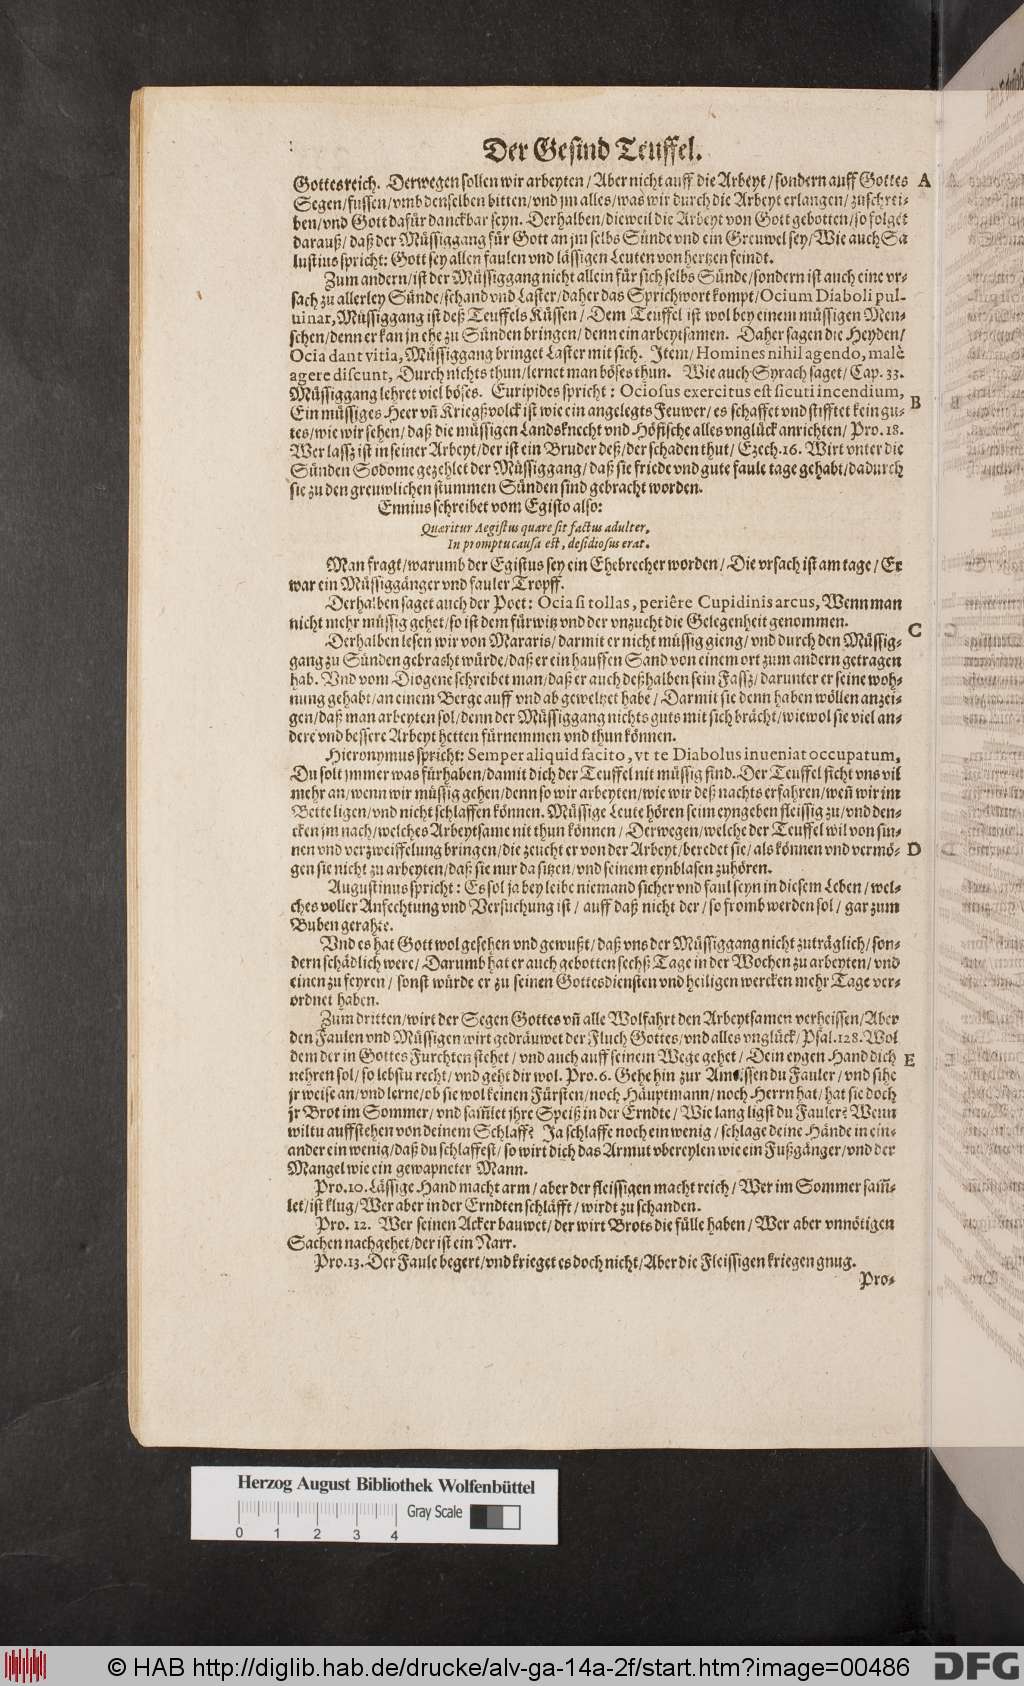 Der Gesind Teuffel.
Gottesreich. Derwegen sollen wir arbeyten / Aber nicht auff die Arbeyt / sondern auff Gottes A
Segen / fussen / vmb denselben bitten / vnd jm alles / was wir durch die Arbeyt erlangen / zuschrei-
ben / vnd Gott dafür danckbar seyn. Derhalben / dieweil die Arbeyt von Gott gebotten / so folget
darauß / daß der Müssiggang für Gott an jm selbs Sünde vnd ein Grewel sey / Wie auch Sa
lustius spricht: Gott sey allen faulen vnd lässigen Leuten von hertzen feindt.
Zum andern / ist der Müssiggang nicht allein für sich selbs Sünde / sondern ist auch eine vr-
sach zu allerley Sünde / schand vnd Laster / daher das Sprichwort kompt / Ocium Diaboli pul-
uinar, Müssiggang ist deß Teuffels Küssen / Dem Teuffel ist wol bey einem müssigen Men-
schen / denn er kan jn ehe zu Sünden bringen / denn ein arbeytsamen. Daher sagen die Heyden /
Ocia dant vitia, Müssiggang bringet Laster mit sich. Item / Homines nihil agendo, malè
agere discunt, Durch nichts thun / lernet man böses thun. Wie auch Syrach saget / Cap. 33.
Müssiggang lehret viel böses. Euripides spricht: Ociosus exercitus est sicuti incendium, B
Ein müssiges Heer vñ Kriegßvolck ist wie ein angelegts Feuwer / es schaffet vnd stifftet kein gu-
tes / wie wir sehen / daß die müssigen Landsknecht vnd Höfische alles vnglück anrichten / Pro. 18.
Wer lassz ist in seiner Arbeyt / der ist ein Bruder deß / der schaden thut / Ezech. 16. Wirt vnter die
Sünden Sodome gezehlet der Müssiggang / daß sie friede vnd gute faule tage gehabt / dadurch
sie zu den greuwlichen stummen Sünden sind gebracht worden.
Ennius schreibet vom Egisto also:
Quæritur Aegistus quare sit factus adulter,
In promptu causa est, desidiosus erat.
Man fragt / warumb der Egistus sey ein Ehebrecher worden / Die vrsach ist am tage / Er
war ein Müssiggänger vnd fauler Tropff.
Derhalben saget auch der Poet: Ocia si tollas, periêre Cupidinis arcus, Wenn man
nicht mehr müssig gehet / so ist dem fürwitz vnd der vnzucht die Gelegenheit genommen. C
Derhalben lesen wir von Mararis / darmit er nicht müssig gieng / vnd durch den Müssig-
gang zu Sünden gebracht würde / daß er ein hauffen Sand von einem ort zum andern getragen
hab. Vnd vom Diogene schreibet man / daß er auch deßhalben sein Fassz / darunter er seine woh-
nung gehabt / an einem Berge auff vnd ab geweltzet habe / Darmit sie denn haben wöllen anzei-
gen / daß man arbeyten sol / denn der Müssiggang nichts guts mit sich brächt / wiewol sie viel an-
dere vnd bessere Arbeyt hetten fürnemmen vnd thun können.
Hieronymus spricht: Semper aliquid facito, vt te Diabolus inueniat occupatum,
Du solt jmmer was fürhaben / damit dich der Teuffel nit müssig find. Der Teuffel ficht vns vil
mehr an / wenn wir müssig gehen / denn so wir arbeyten / wie wir deß nachts erfahren / weñ wir im
Bette ligen / vnd nicht schlaffen können. Müssige Leute hören seim eyngeben fleissig zu / vnd den-
cken jm nach / welches Arbeytsame nit thun können / Derwegen / welche der Teuffel wil von sin-
nen vnd verzweiffelung bringen / die zeucht er von der Arbeyt / beredet sie / als können vnd vermö- D
gen sie nicht zu arbeyten / daß sie nur da sitzen / vnd seinem eynblasen zuhören.
Augustinus spricht: Es sol ja bey leibe niemand sicher vnd faul seyn in diesem Leben / wel-
ches voller Anfechtung vnd Versuchung ist / auff daß nicht der / so fromb werden sol / gar zum
Buben gerahte.
Vnd es hat Gott wol gesehen vnd gewußt / daß vns der Müssiggang nicht zuträglich / son-
dern schädlich were / Darumb hat er auch gebotten sechß Tage in der Wochen zu arbeyten / vnd
einen zu feyren / sonst würde er zu seinen Gottesdiensten vnd heiligen wercken mehr Tage ver-
ordnet haben.
Zum dritten / wirt der Segen Gottes vñ alle Wolfahrt den Arbeytsamen verheissen / Aber
den Faulen vnd Müssigen wirt gedräuwet der Fluch Gottes / vnd alles vnglück / Psal. 128. Wol
dem der in Gottes Furchten stehet / vnd auch auff seinem Wege gehet / Dein eygen Hand dich E
nehren sol / so lebstu recht / vnd geht dir wol. Pro. 6. Gehe hin zur Amessen du Fauler / vnd sihe
jr weise an / vnd lerne / ob sie wol keinen Fürsten / noch Häuptmann / noch Herrn hat / hat sie doch
jr Brot im Sommer / vnd sam̃let jhre Speiß in der Erndte / Wie lang ligst du Fauler? Wenn
wiltu auffstehen von deinem Schlaff? Ja schlaffe noch ein wenig / schlage deine Hände in ein-
ander ein wenig / daß du schlaffest / so wirt dich das Armut vbereylen wie ein Fußgänger / vnd der
Mangel wie ein gewapneter Mann.
Pro. 10. Lässige Hand macht arm / aber der fleissigen macht reich / Wer im Sommer sam̃-
let / ist klug / Wer aber in der Erndten schläfft / wirdt zu schanden.
Pro. 12. Wer seinen Acker bauwet / der wirt Brots die fülle haben / Wer aber vnnötigen
Sachen nachgehet / der ist ein Narr.
Pro. 13. Der Faule begert / vnd krieget es doch nicht / Aber die Fleissigen kriegen gnug.
Pro-
Herzog August Bibliothek Wolfenbüttel
0 1 2 3 4 Gray Scale
© HAB http://diglib.hab.de/drucke/alv-ga-14a-2f/start.htm?image=00486 DFG